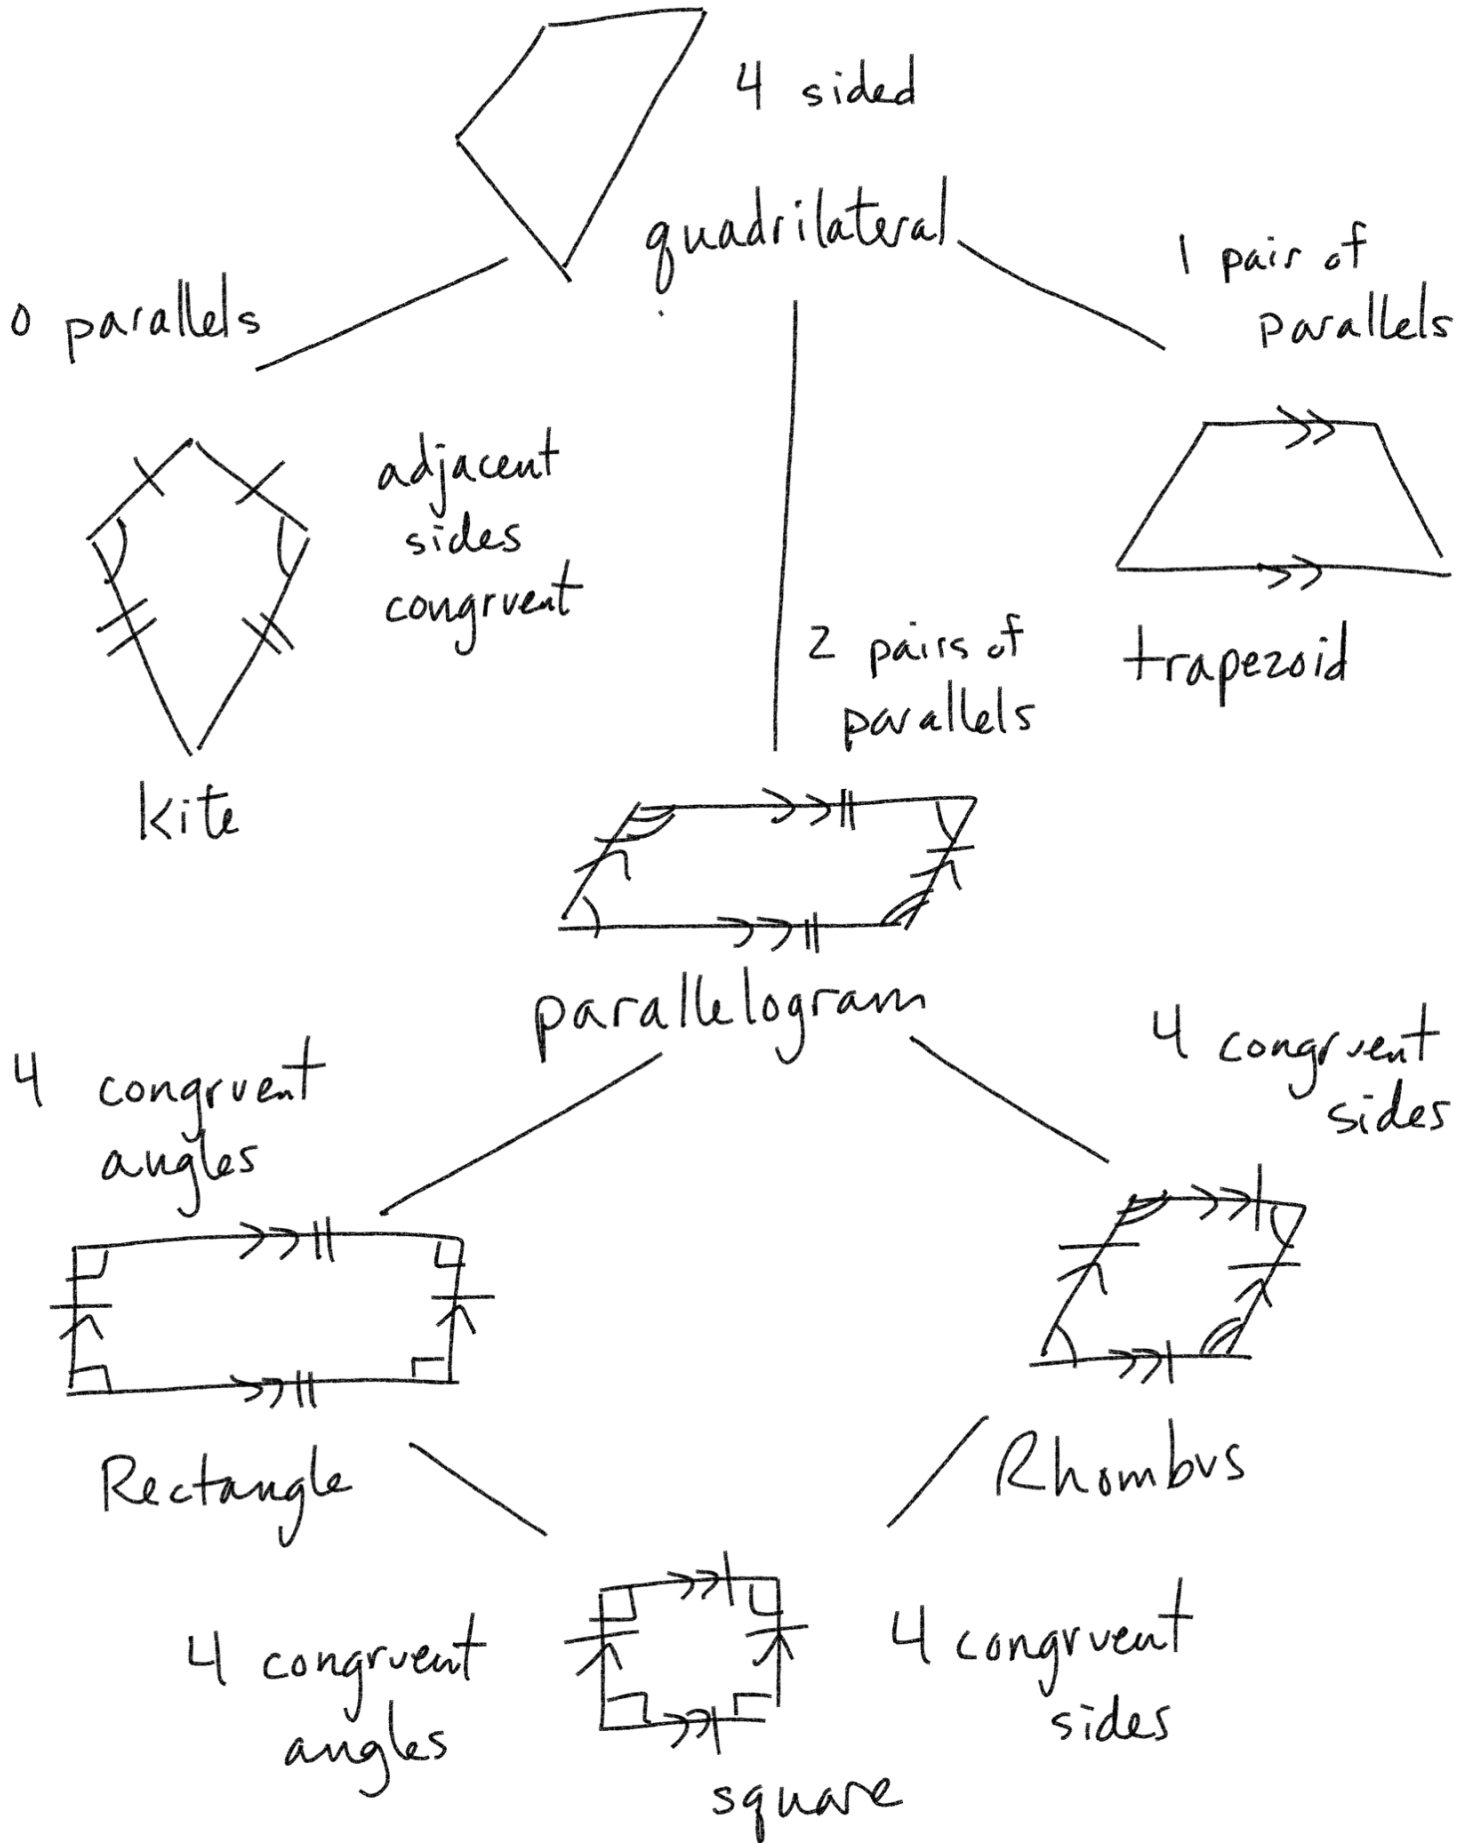 4 sided
quadrilateral
0 parallels
1 pair of
parallels
adjacent
sides
congruent
kite
2 pairs of
parallels
trapezoid
parallelogram
4 congruent
angles
4 congruent
sides
Rectangle
Rhombus
4 congruent
angles
4 congruent
sides
square